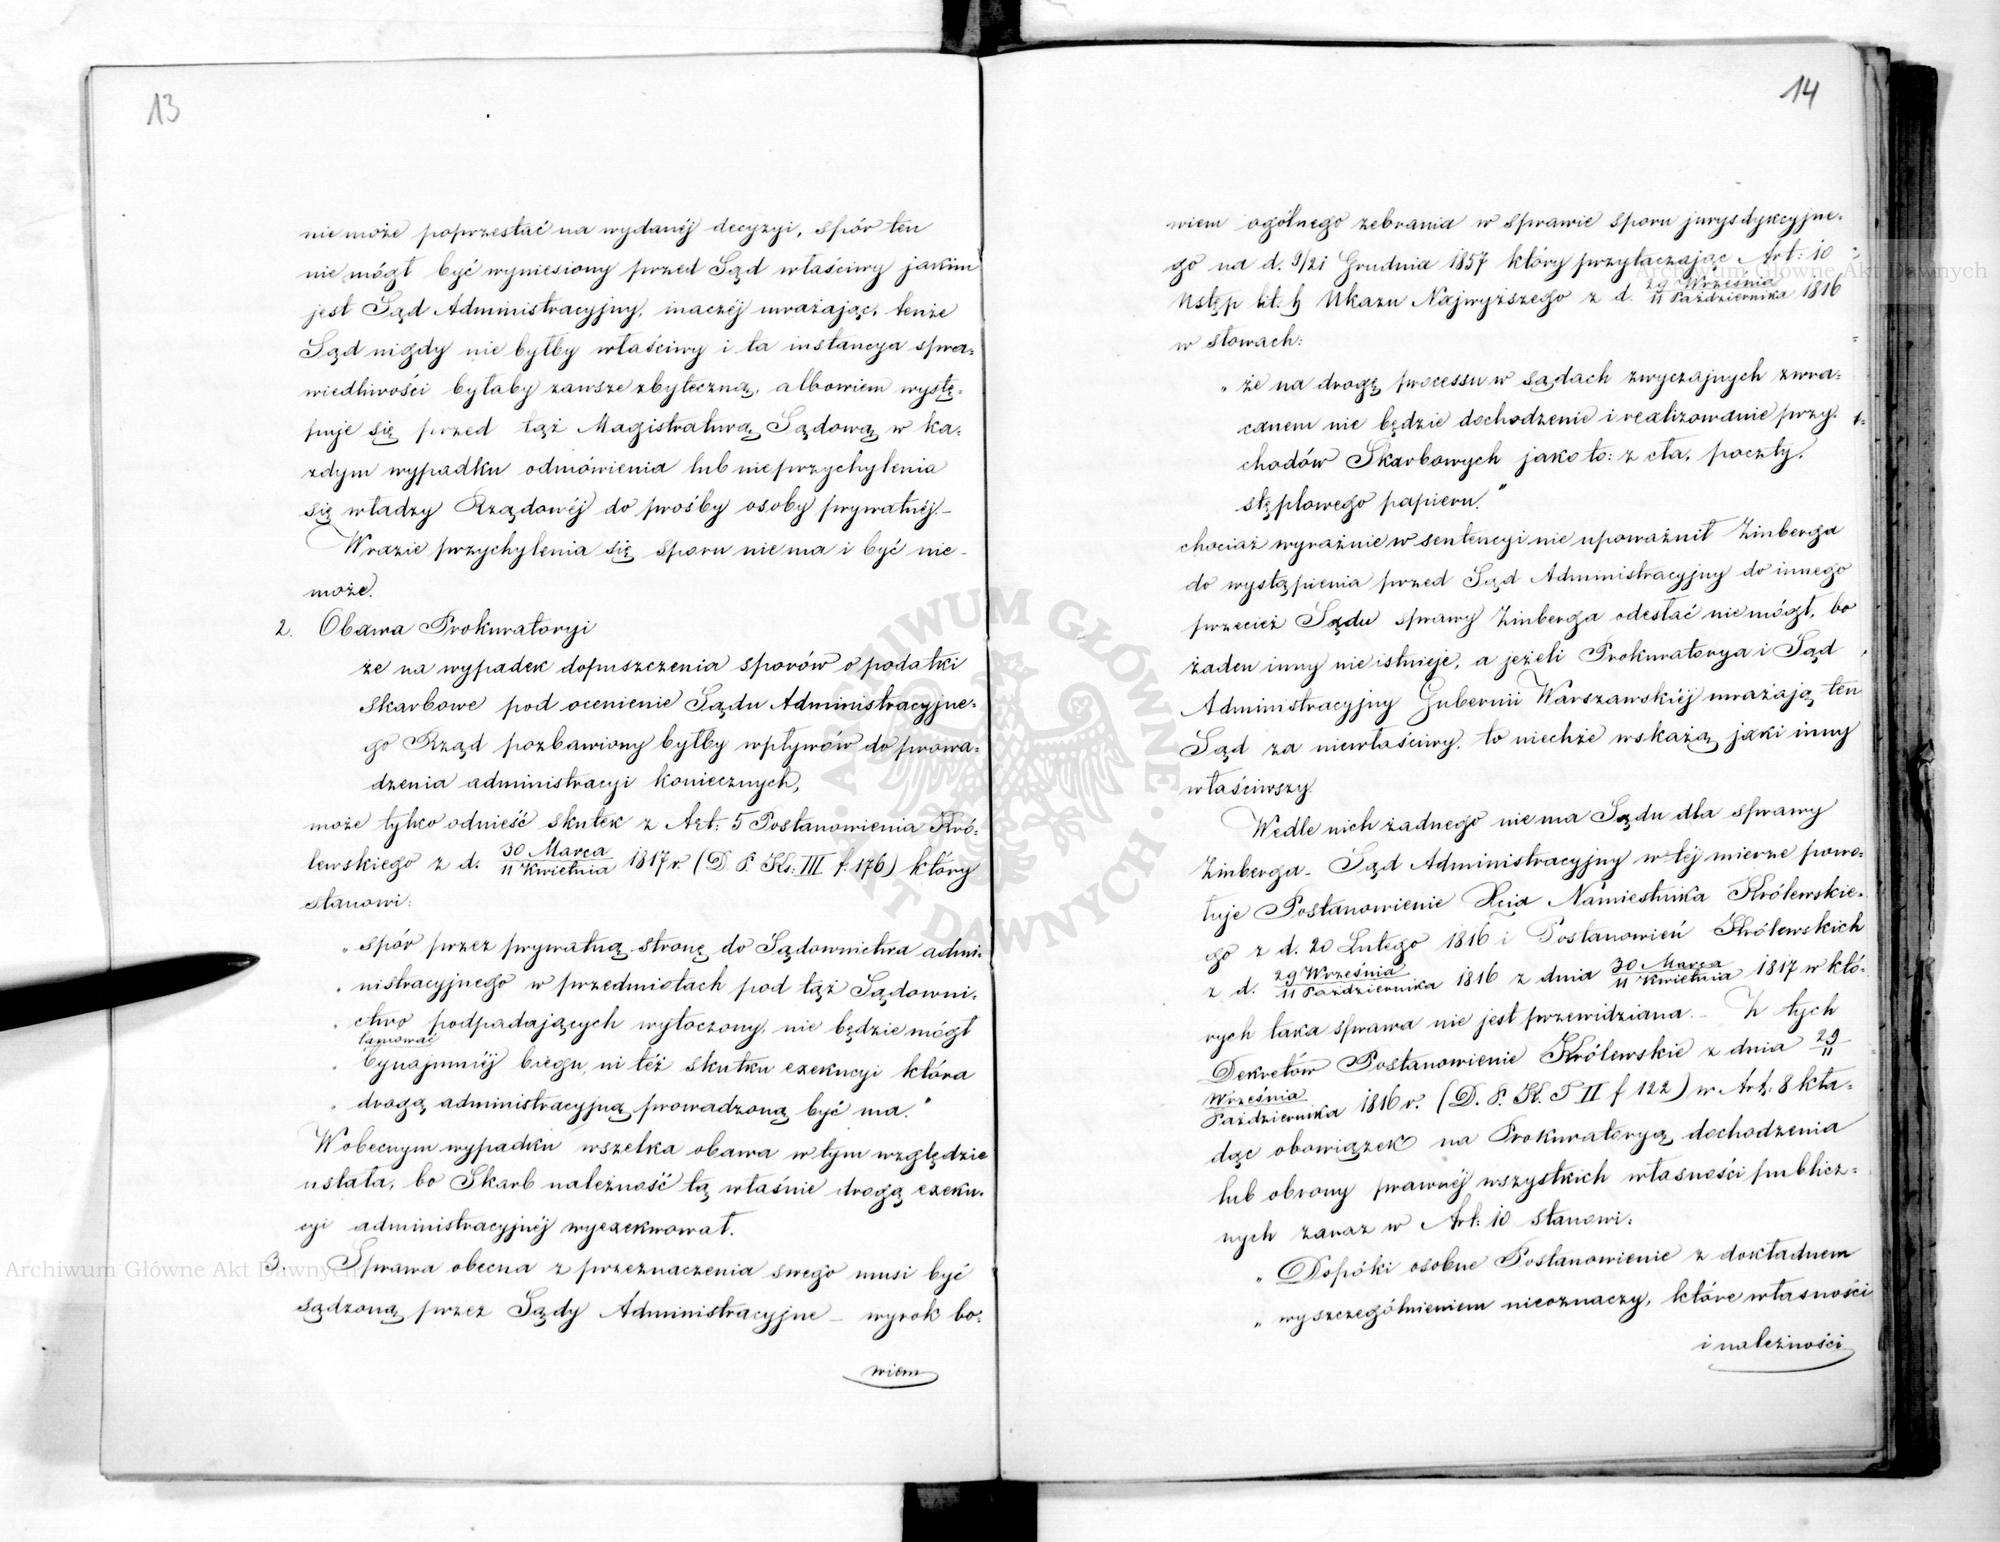 13
nie może poprzestać na wydanéj decyzyi, spór ten
nie mógł być wyniesiony przed Sąd właściwy jakim
jest Sąd Administracyjny, inaczéj uważając, tenże
Sąd nigdy nie byłby właściwy i ta instancya spra=
wiedliwości byłaby zawsze zbyteczną, albowiem wystę=
puje się przed tąż Magistraturą Sądową w ka=
żdym wypadku odmówienia lub nieprzychylenia
się władzy Rządowéj do prośby osoby prywatnéj.–
W razie przychylenia się sporu nie ma i być nie–
może.
2. Obawa Prokuratoryi
że na wypadek dopuszczenia sporów o podatki
skarbowe pod ocenienie Sądu Administracyjne=
go Rząd pozbawiony byłby wpływów do prowa=
dzenia administracyi koniecznych,
może tylko odnieść skutek z Art: 5 Postanowienia Kró=
lewskiego z d. 30 Marca / 11 Kwietnia 1817 r. (D. P. Ks: III f. 176) który
stanowi:
„ spór przez prywatną stronę do Sądownictwa admi=
„ nistracyjnego w przedmiotach pod tąż Sądowni=
„ ctwo podpadających wytoczony, nie będzie mógł
tamować
„ bynajmniéj biegu, ni téż skutku exekucyi która
„ drogą administracyjną prowadzoną być ma.“
W obecnym wypadku wszelka obawa w tym względzie
ustała, bo Skarb należność tą właśnie drogą exeku=
cyi administracyjnéj wyexekwował.
3. Sprawa obecna z przeznaczenia swego musi być
sądzoną przez Sądy Administracyjne – wyrok bo=
wiem
14
wiem ogólnego zebrania w sprawie sporu jurysdykcyjne=
go na d. 9/21 Grudnia 1857 który przytaczając Art: 10
Ustęp lit. h Ukazu Najwyższego z d. 29 Września / 11 Października 1816
w słowach:
„ że na drogę processu w sądach zwyczajnych zwra=
canem nie będzie dochodzenie i realizowanie przy=
chodów Skarbowych jako to: z cła, poczty,
stęplowego papieru.“
chociaż wyraźnie w sentencyi nie upoważnił Zinberga
do wystąpienia przed Sąd Administracyjny do innego
przecież Sądu sprawy Zinberga odesłać nie mógł, bo
żaden inny nie istnieje, a jeżeli Prokuratorya i Sąd
Administracyjny Gubernii Warszawskiéj uważają ten
Sąd za niewłaściwy, to niechże wskażą jaki inny
właściwszy.
Wedle nich żadnego nie ma Sądu dla sprawy
Zinberga – Sąd Administracyjny w téj mierze powo=
łuje Postanowienie Xcia Namiestnika Królewskie=
go z d. 20 Lutego 1816 i Postanowień Królewskich
z d. 29 Września / 11 Października 1816 z dnia 30 Marca / 11 Kwietnia 1817 w któ=
rych taka sprawa nie jest przewidziana. – Z tych
Dekretów Postanowienie Królewskie z dnia 29 / 11
Września / Października 1816 r. (D. P. K. T II f 122) w Art: 8 kła=
dąc obowiązek na Prokuratoryą dochodzenia
lub obrony prawnéj wszystkich własności publicz=
nych zaraz w Art: 10 stanowi:
„ Dopóki osobne Postanowienie z dokładnem
„ wyszczególnieniem nieoznaczy, które własności
i należności